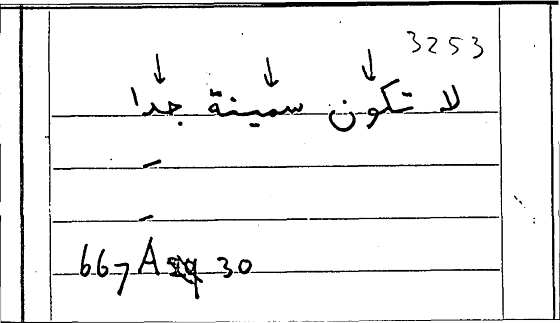 3253
لا تكون سمينة جدا
667 A 30